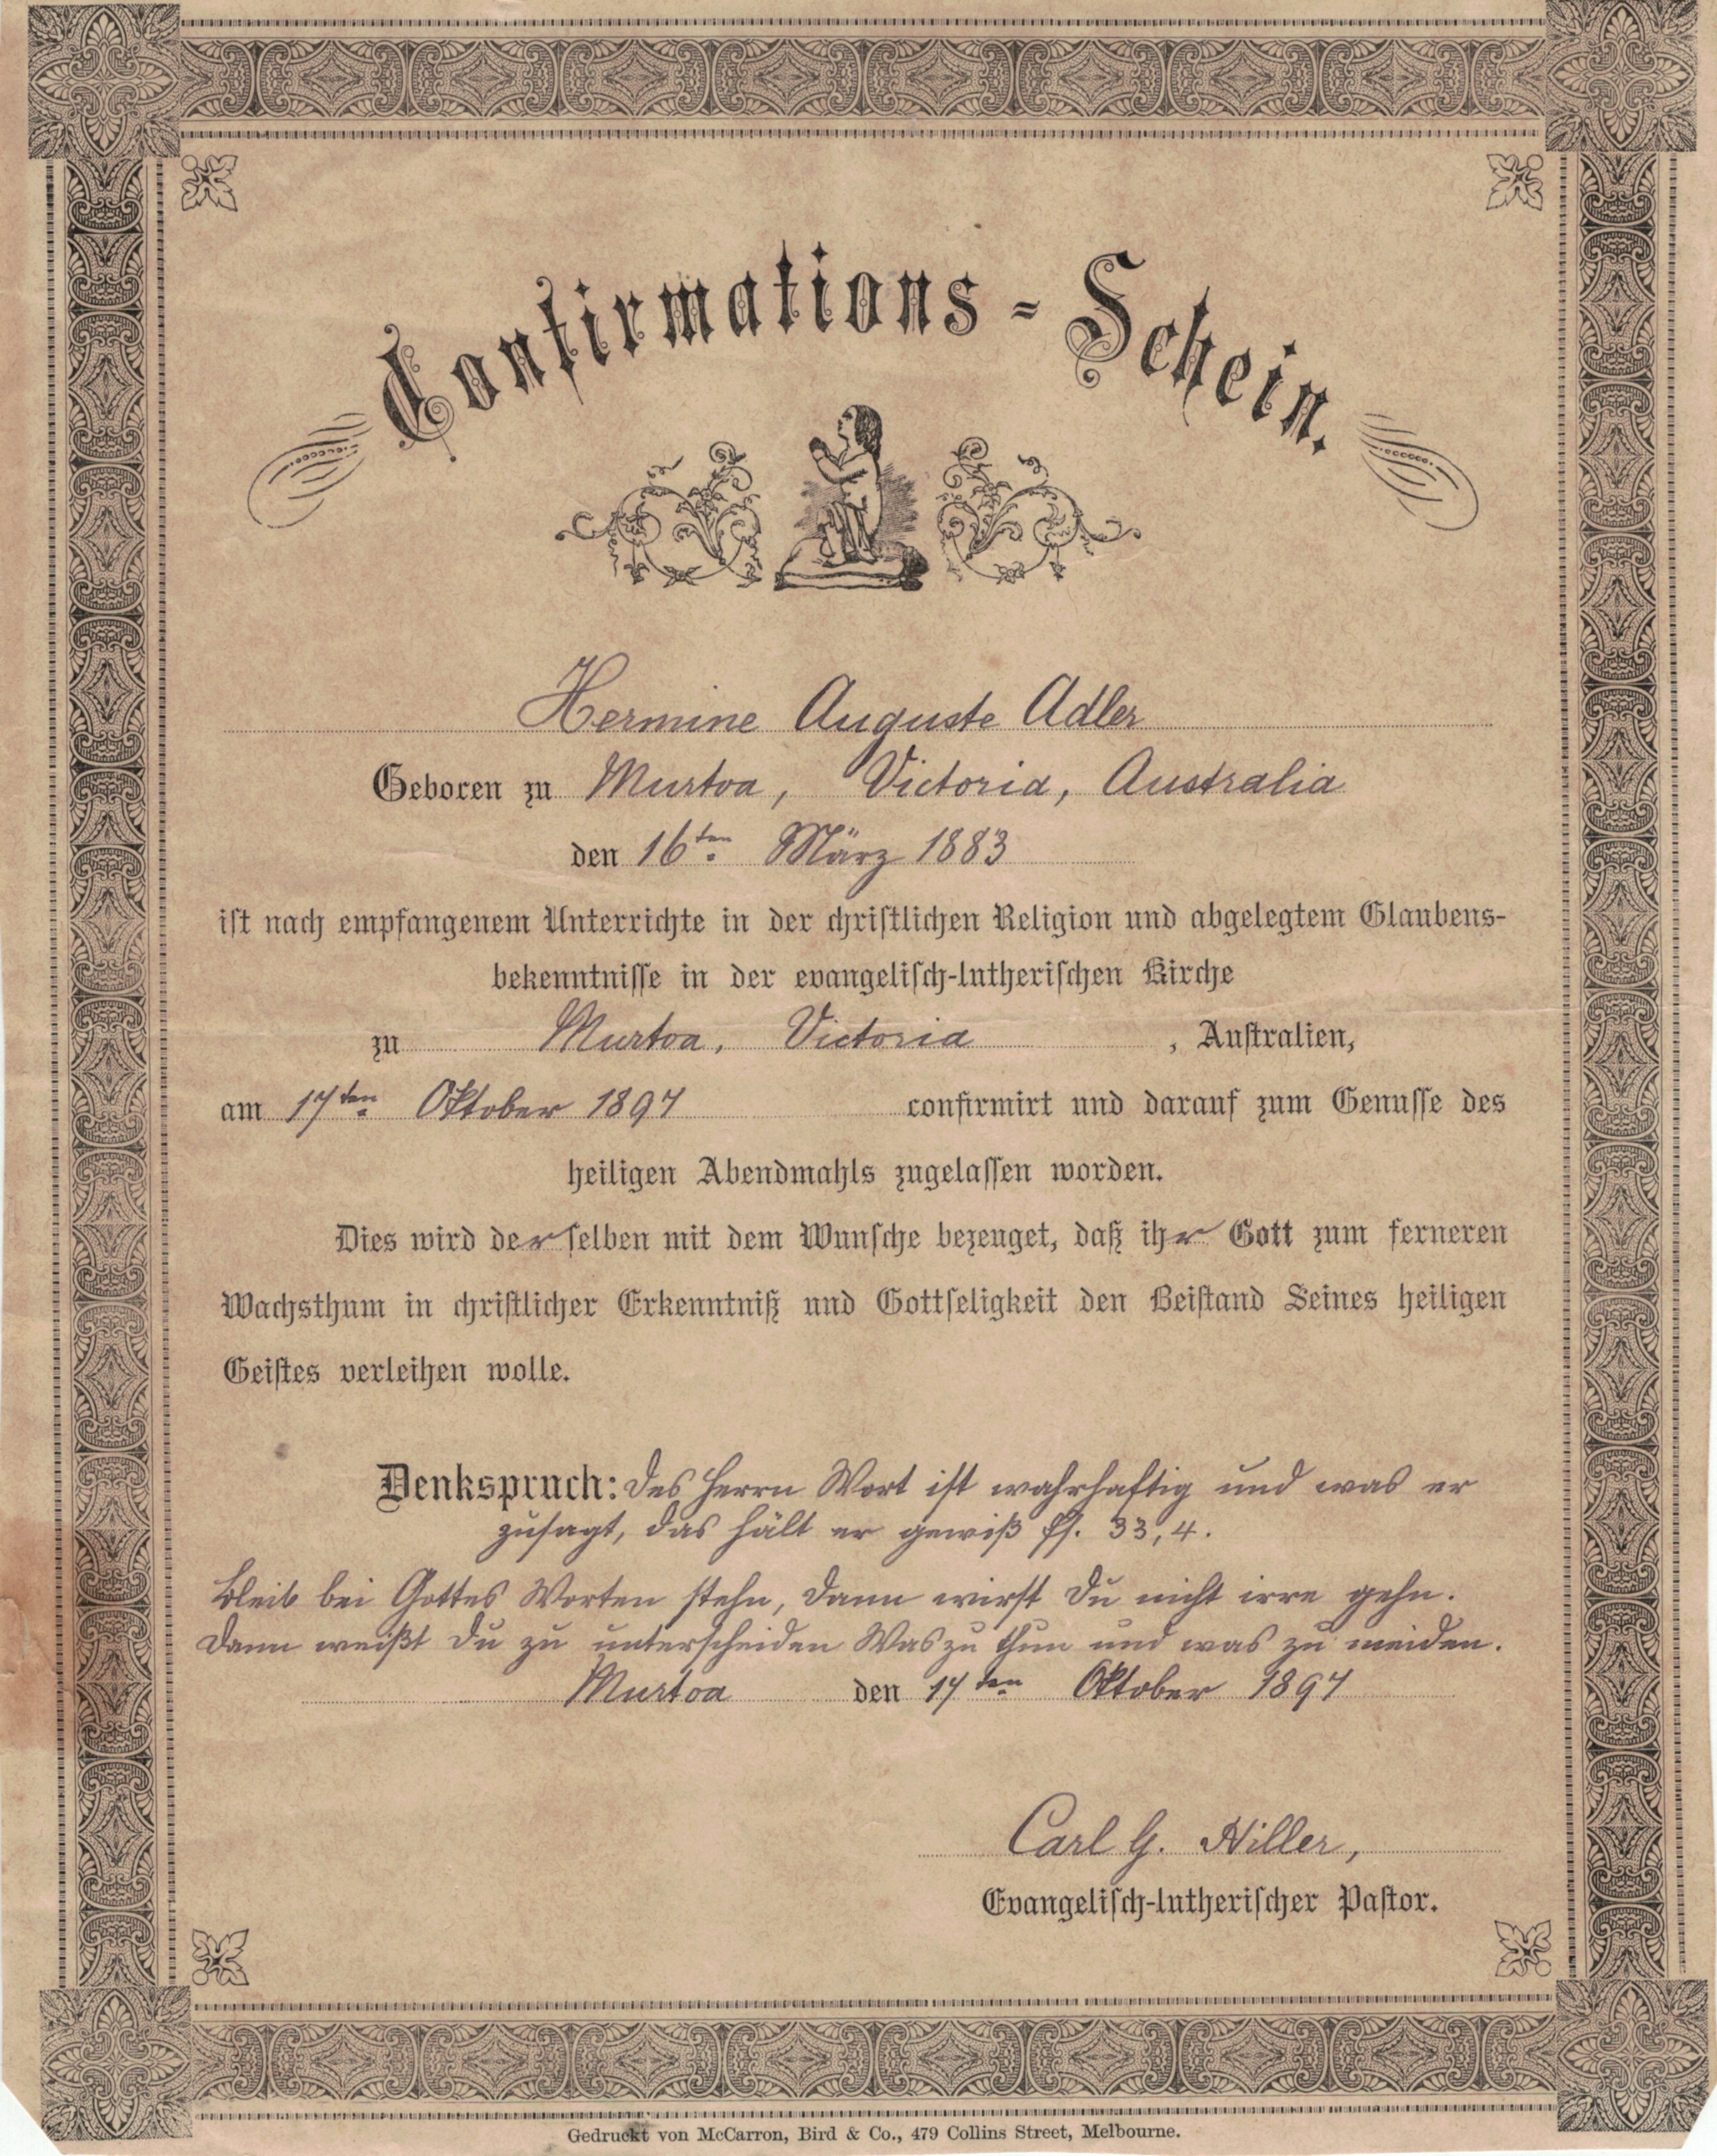 Confirmations-Schein.
Hermine Auguste Adler
Geboren zu Murtoa, Victoria, Australia
den 16ten März 1883
ist nach empfangenem Unterrichte in der christlichen Religion und abgelegtem Glaubens-
bekenntnisse in der evangelisch-lutherischen Kirche
zu Murtoa, Victoria, Australien,
am 17ten Oktober 1897 confirmirt und darauf zum Genusse des
heiligen Abendmahls zugelassen worden.
Dies wird derselben mit dem Wunsche bezeuget, daß ihr Gott zum ferneren
Wachsthum in christlicher Erkenntniß und Gottseligkeit den Beistand Seines heiligen
Geistes verleihen wolle.
Denkspruch: Des Herrn Wort ist wahrhaftig und was er
zusagt, das hält er gewiß Ps. 33, 4.
Bleib bei Gottes Worten stehn, dann wirst Du nicht irre gehn.
Dann weißt Du zu unterscheiden Was zu thun und was zu meiden.
Murtoa den 17ten Oktober 1897
Carl G. Hiller,
Evangelisch-lutherischer Pastor.
Gedruckt von McCarron, Bird & Co., 479 Collins Street, Melbourne.